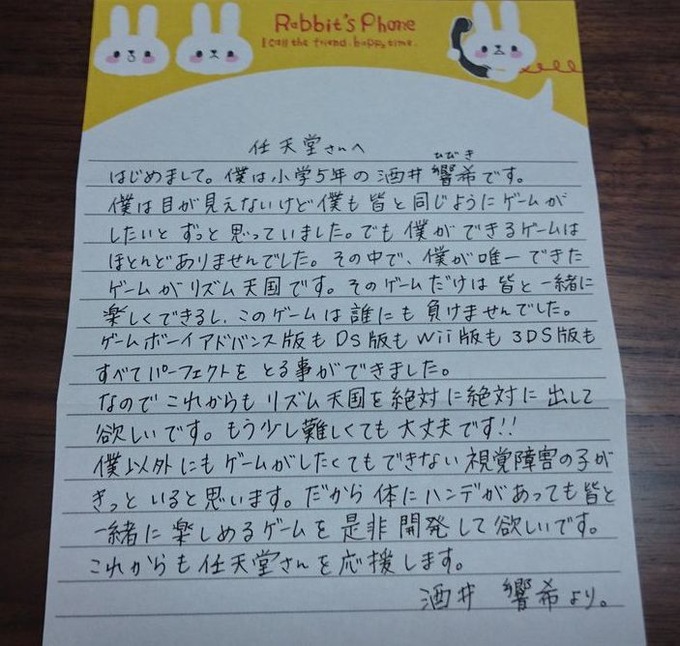 Rabbit's Phone
I call the friend. happy time.
任天堂さんへ
ひびき
はじめまして。僕は小学5年の酒井響希です。
僕は目が見えないけど僕も皆と同じようにゲームが
したいとずっと思っていました。でも僕ができるゲームは
ほとんどありませんでした。その中で、僕が唯一できた
ゲームがリズム天国です。そのゲームだけは皆と一緒に
楽しくできるし、このゲームは誰にも負けませんでした。
ゲームボーイアドバンス版もDS版もWii版も3DS版も
すべてパーフェクトをとる事ができました。
なのでこれからもリズム天国を絶対に絶対に出して
欲しいです。もう少し難しくても大丈夫です!!
僕以外にもゲームがしたくてもできない視覚障害の子が
きっといると思います。だから体にハンデがあっても皆と
一緒に楽しめるゲームを是非開発して欲しいです。
これからも任天堂さんを応援します。
酒井響希より。